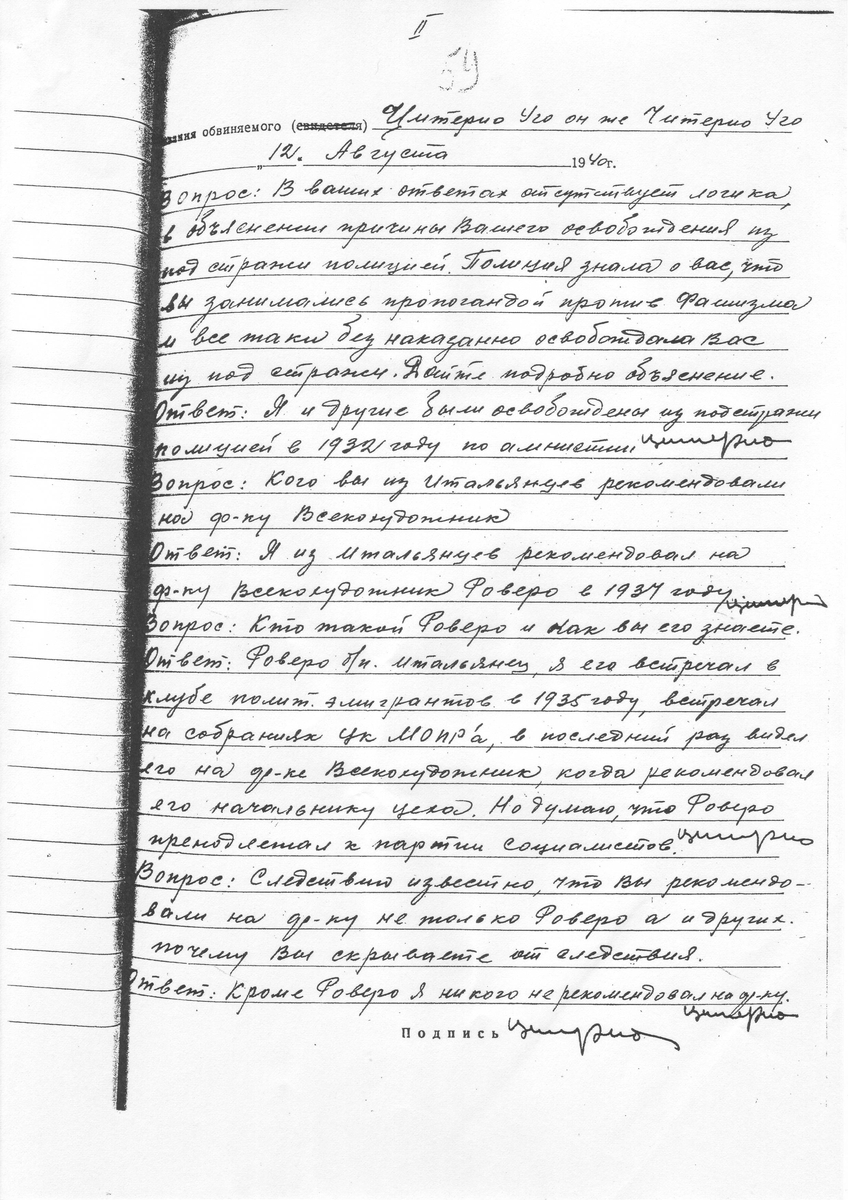 II
59
зания обвиняемого (свидетеля) Цитерио Уго он же Читерио Уго
„12. Августа 1940г.
Вопрос: В ваших ответах отсутствует логика,
в объяснении причины Вашего освобождения из
под стражи полицией. Полиция знала о вас, что
вы занимались пропогандой против Фашизма
и все таки без наказанно освобождала Вас
из под стражи. Дайте подробно объяснение.
Ответ: Я и другие были освобождены из подстражи
полицией в 1932 году по амнистии. Цитерио
Вопрос: Кого вы из Итальянцев рекомендовали
на ф-ку Всекохудожник
Ответ: Я из итальянцев рекомендовал на
ф-ку Всекохудожник Роверо в 1937 году Цитерио
Вопрос: Кто такой Роверо и как вы его знаете.
Ответ: Роверо б/п. итальянец, я его встречал в
клубе полит. эмигрантов в 1935 году, встречал
на собраниях ЦК МОПРа, в последний раз видел
его на ф-ке Всекохудожник, когда рекомендовал
его начальнику цеха. Но думаю, что Роверо
пренодлежал к партии социалистов. Цитерио
Вопрос: Следствию известно, что Вы рекомендо-
вали на ф-ку не только Роверо а и других.
почему Вы скрываете от следствия.
Ответ: Кроме Роверо я никого не рекомендовал на ф-ку.
Цитерио
Подпись Цитерио